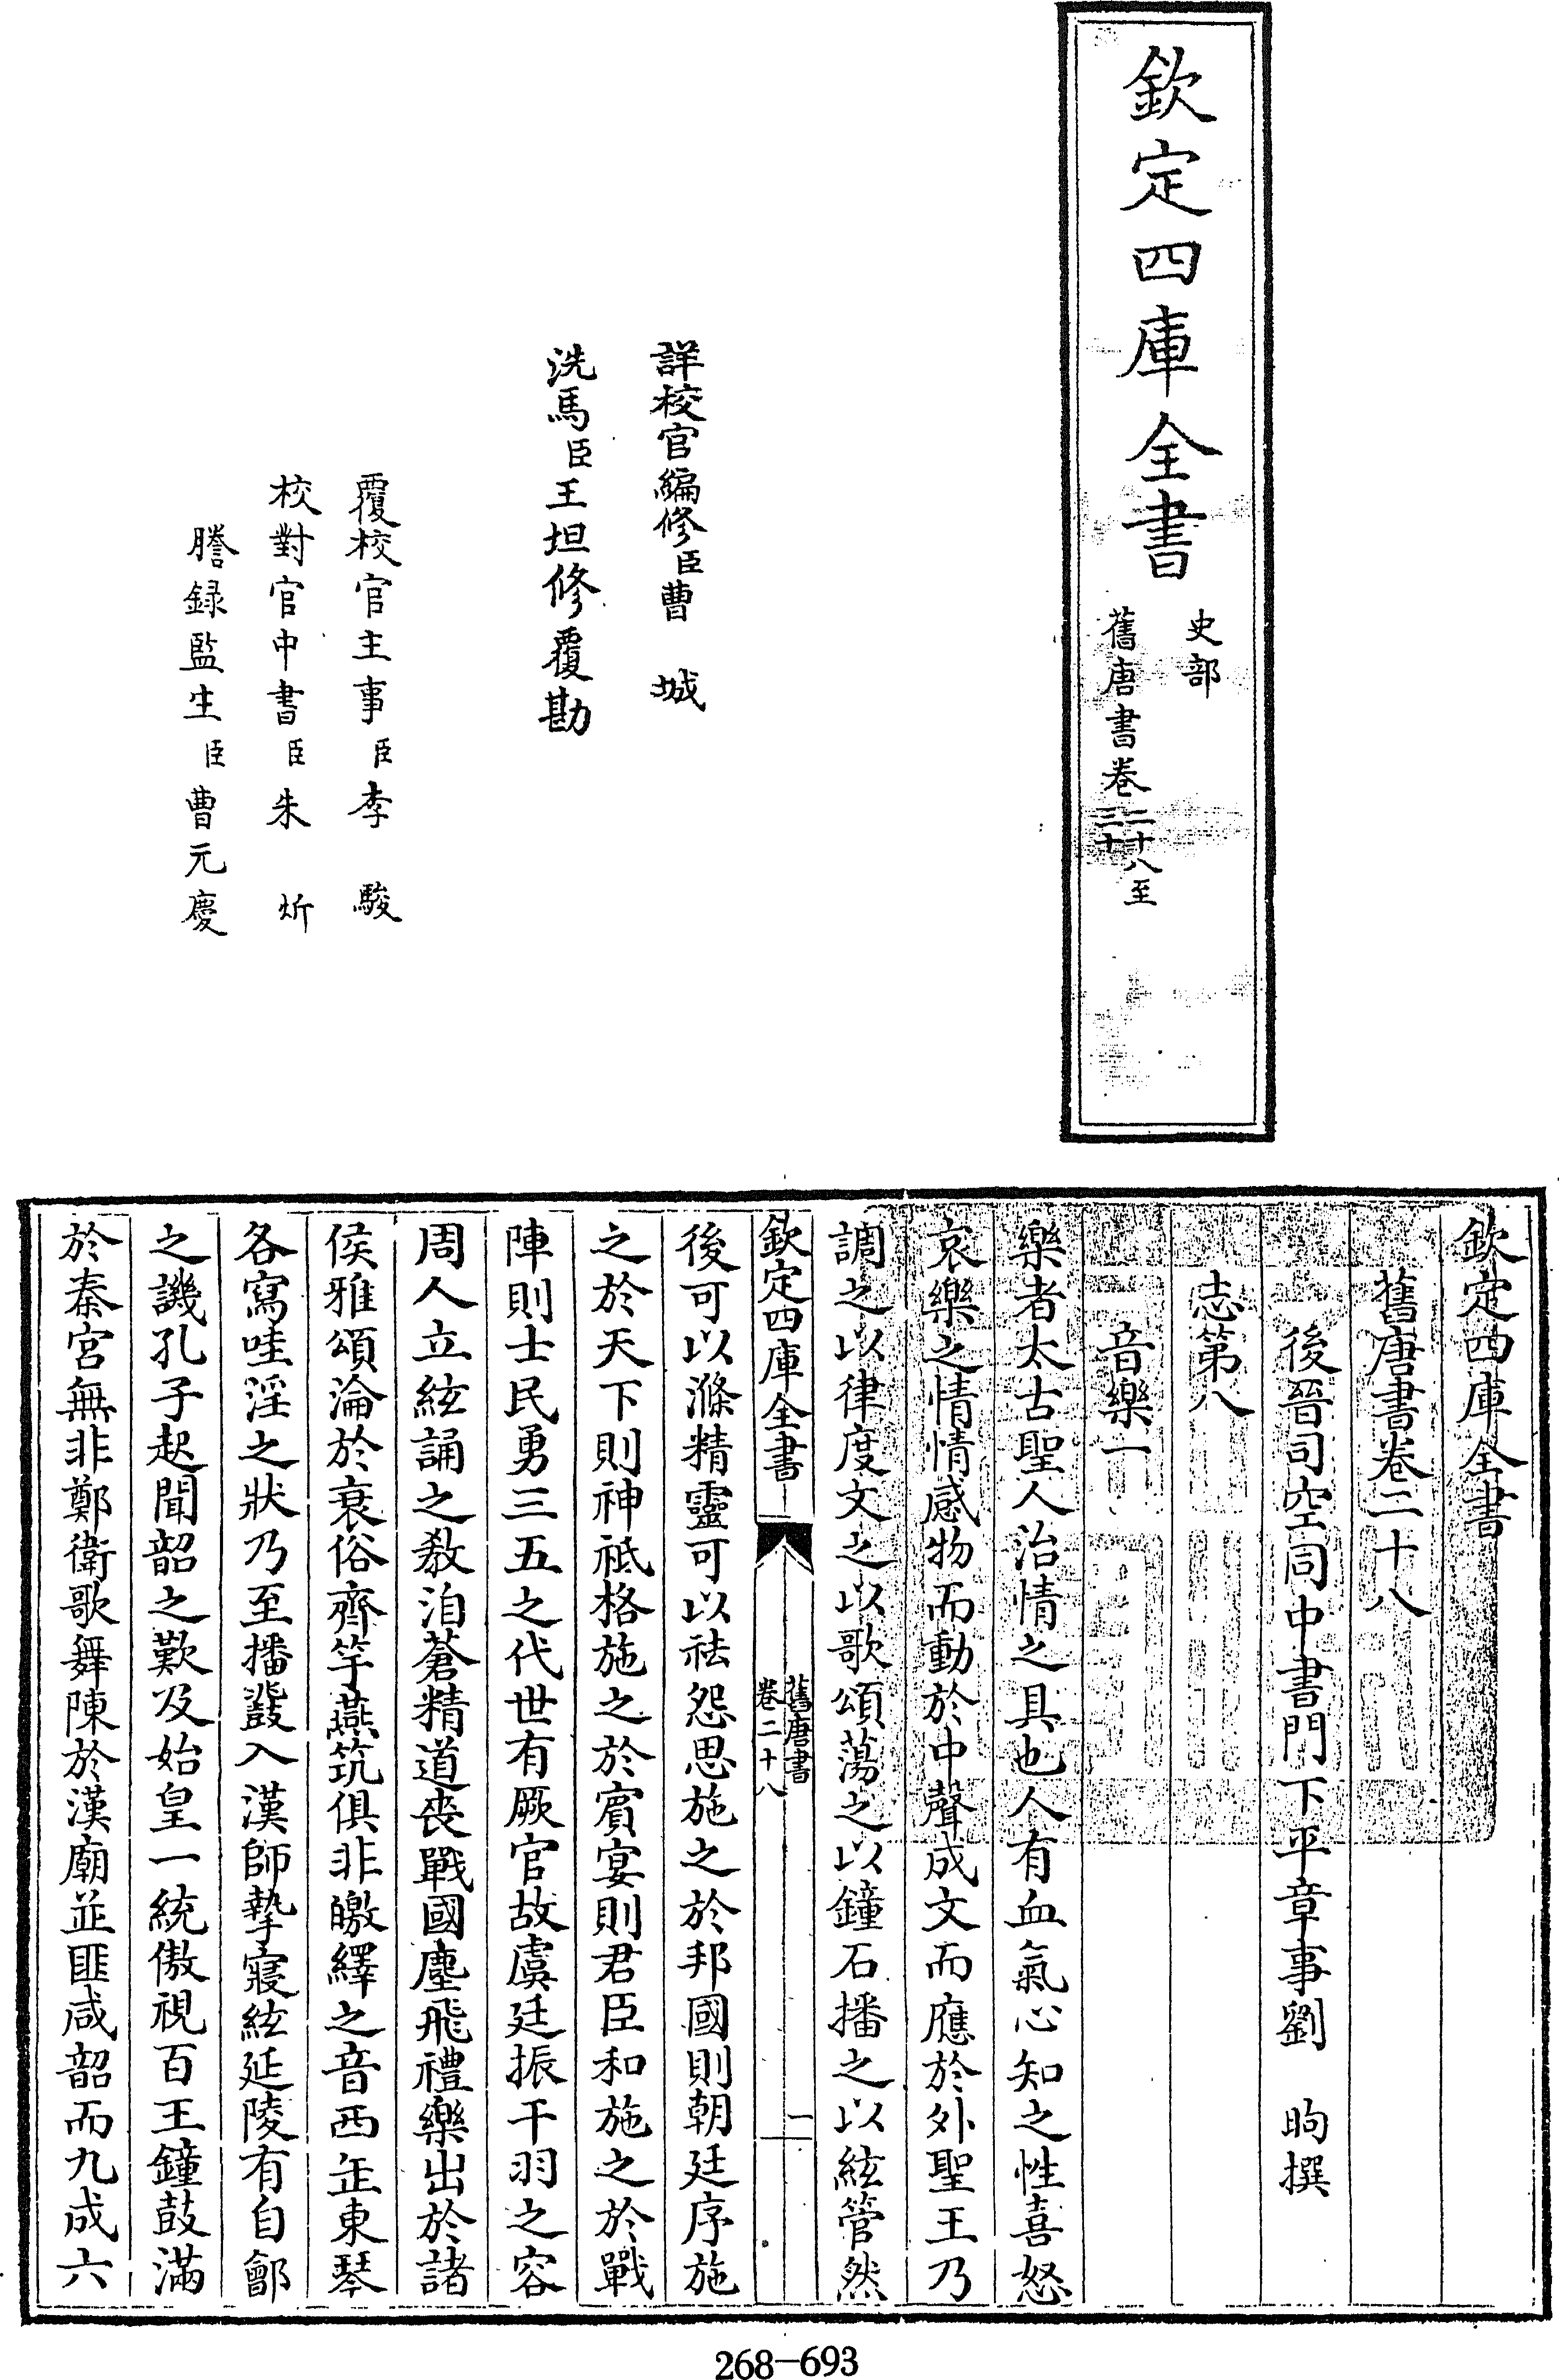 欽定四庫全書
史部
舊唐書卷二十八至三十
詳校官編修臣曹城
洗馬臣王坦修覆勘
覆校官主事臣李駿
校對官中書臣朱炘
謄録監生臣曹元慶
欽定四庫全書
舊唐書卷二十八
後晉司空同中書門下平章事劉昫撰
志第八
音樂一
樂者太古聖人治情之具也人有血氣心知之性喜怒
哀樂之情情感物而動於中聲成文而應於外聖王乃
調之以律度文之以歌頌蕩之以鐘石播之以絃管然
欽定四庫全書
舊唐書
卷二十八
一
後可以滌精靈可以祛怨思施之於邦國則朝廷序施
之於天下則神祇格施之於賓宴則君臣和施之於戰
陣則士民勇三五之代世有厥官故虞廷振干羽之容
周人立絃誦之教洎蒼精道喪戰國塵飛禮樂出於諸
侯雅頌淪於衰俗齊竽燕筑俱非皦繹之音西缶東琴
各寫哇淫之狀乃至播鼗入漢師摯寢絃延陵有自鄶
之譏孔子起聞韶之歎及始皇一統傲視百王鐘鼓滿
於秦宮無非鄭衛歌舞陳於漢廟並匪咸韶而九成六
268-693